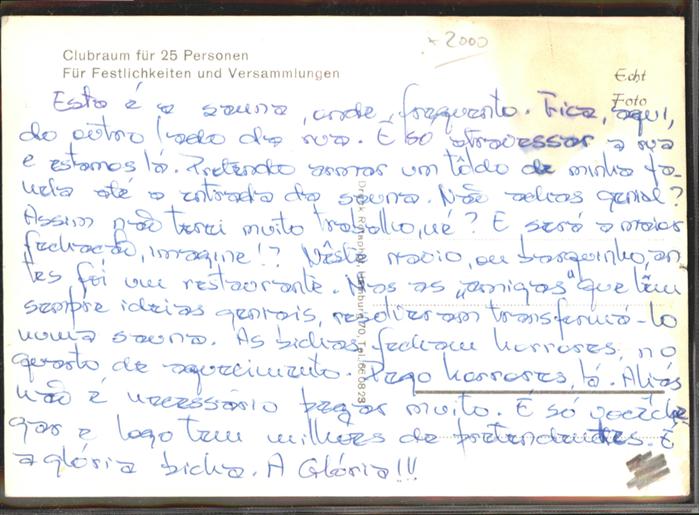 x 2000
Clubraum für 25 Personen
Für Festlichkeiten und Versammlungen
Echt
Foto
Esta é a sauna, onde frequento. Fica, aqui,
do outro lado da rua. É só atravessar a rua
e estamos lá. Pretendo armar um tôldo de minha ja-
nela até a entrada da sauna. Não achas genial?
Assim não terei muito trabalho, né? E será a maior
fechação, imagine!? Nêste navio, ou barquinho, an-
tes foi um restaurante. Mas as "amigas" que têm
sempre ideias geniais, resolveram transformá-lo
numa sauna. As bichas fecham horrores, no
quarto de aquecimento. Pego horrores, lá. Aliás
não é necessário pegar muito. É só você che-
gar e logo tem milhares de pretendentes. É
a glória bicha. A Glória!!!
Hamburg 70, Tel. 66 08 23